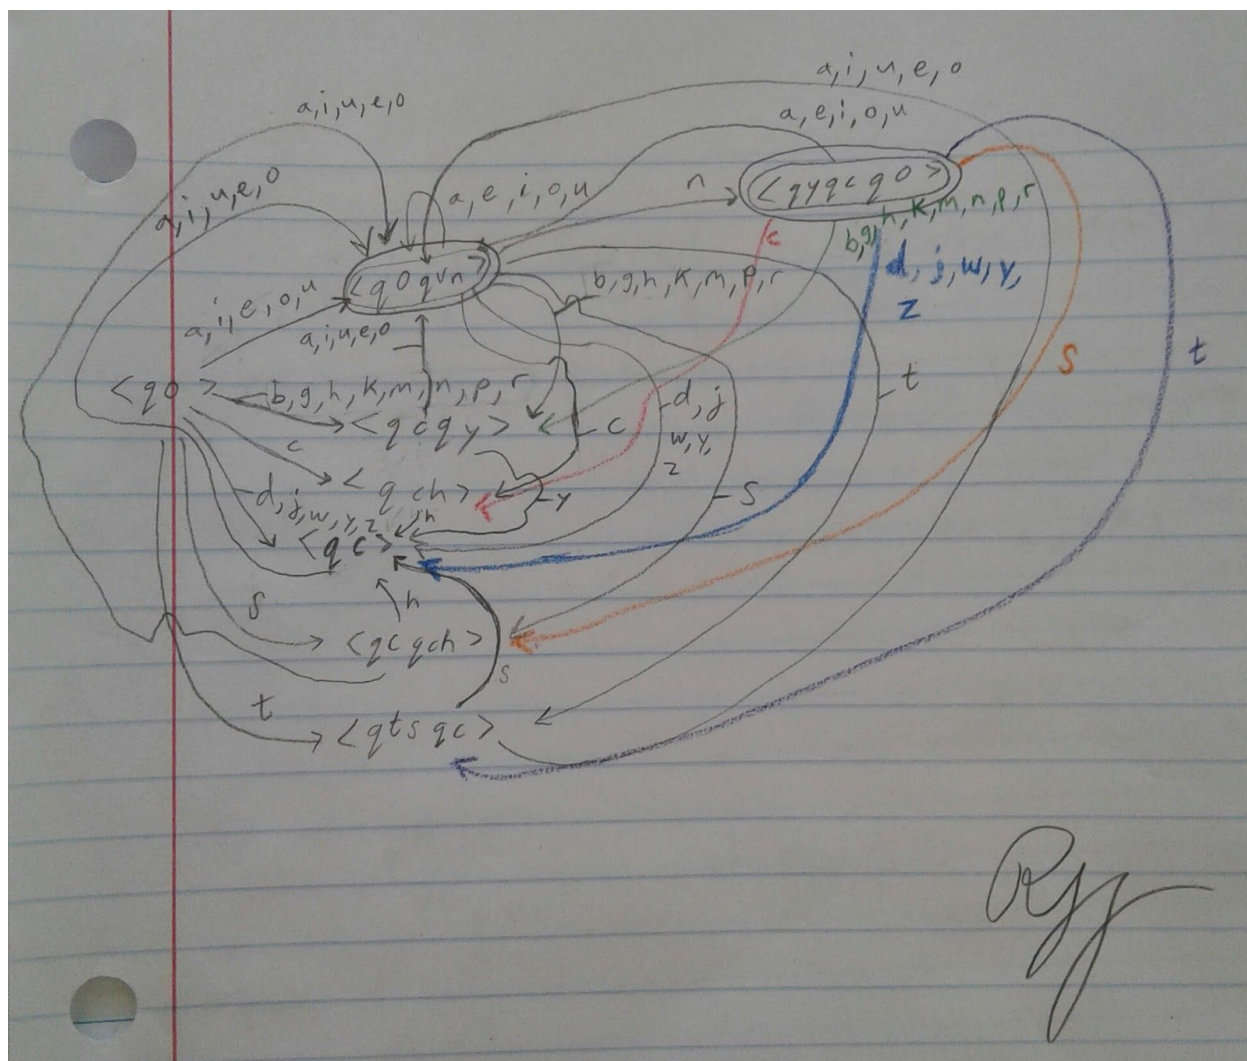 a,i,u,e,o
a,i,u,e,o
a,e,i,o,u
a,i,u,e,o
a,e,i,o,u
n
<qyqcq0>
c
b,g,h,k,m,n,p,r
d,j,w,y,
z
<q0qvn>
b,g,h,k,m,p,r
a,i,e,o,u
a,i,u,e,o
S
t
t
<q0>
b,g,h,k,m,n,p,r
<qcqy>
c
d,j
w,y,
z
c
<qch>
y
S
d,j,w,y,z
h
<qc>
h
S
<qcqch>
s
t
<qtsqc>